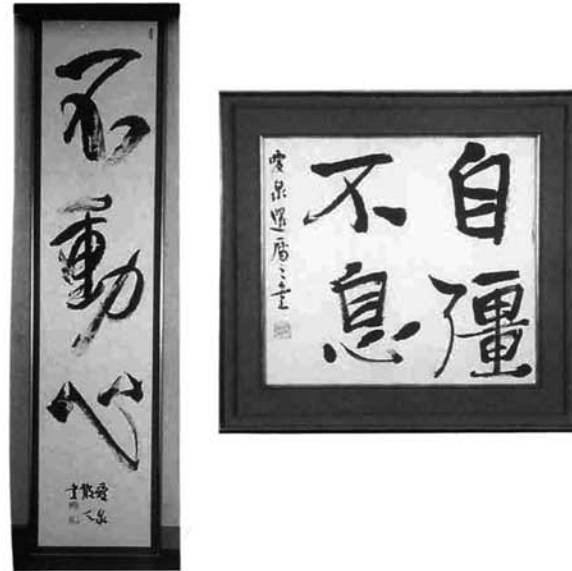 不動心
愛泉
散人
書
自彊
不息
愛泉還暦之書